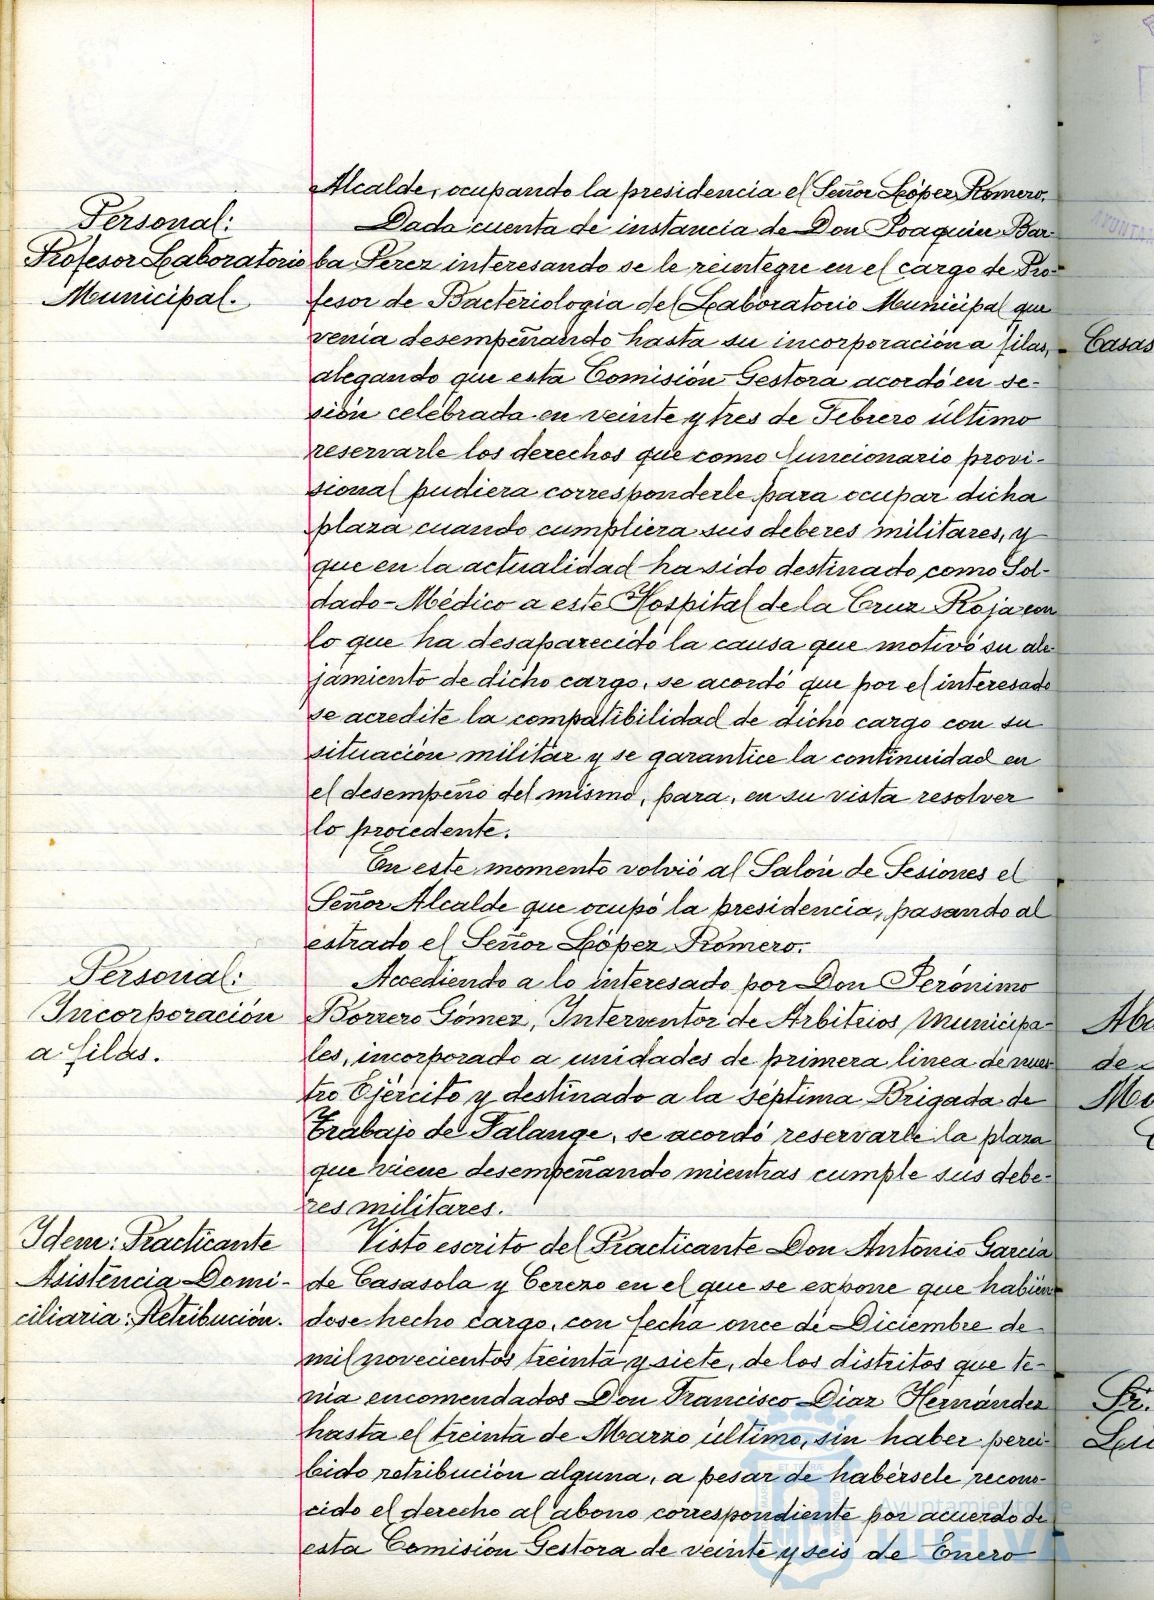 Alcalde, ocupando la presidencia el Señor López Romero.
Personal:
Profesor Laboratorio
Municipal.
Dada cuenta de instancia de Don Joaquín Bar-
ba Perez interesando se le reintegre en el cargo de Pro-
fesor de Bacteriología del Laboratorio Municipal que
venía desempeñando hasta su incorporación a filas,
alegando que esta Comisión Gestora acordó en se-
sión celebrada en veinte y tres de Febrero último
reservarle los derechos que como funcionario provi-
sional pudiera corresponderle para ocupar dicha
plaza cuando cumpliera sus deberes militares, y
que en la actualidad ha sido destinado como Sol-
dado-Médico a este Hospital de la Cruz Roja con
lo que ha desaparecido la causa que motivó su ale-
jamiento de dicho cargo, se acordó que por el interesado
se acredite la compatibilidad de dicho cargo con su
situación militar y se garantice la continuidad en
el desempeño del mismo, para, en su vista resolver
lo procedente.
En este momento volvió al Salón de Sesiones el
Señor Alcalde que ocupó la presidencia, pasando al
estrado el Señor López Romero.
Personal:
Incorporación
a filas.
Accediendo a lo interesado por Don Jerónimo
Borrero Gómez, Interventor de Arbitrios Municipa-
les, incorporado a unidades de primera linea de nues-
tro Ejército y destinado a la séptima Brigada de
Trabajo de Falange, se acordó reservarle la plaza
que viene desempeñando mientras cumple sus debe-
res militares.
Idem: Practicante
Asistencia Domi-
ciliaria: Retribución.
Visto escrito del Practicante Don Antonio García
de Casasola y Cerezo en el que se expone que habién-
dose hecho cargo, con fecha once de Diciembre de
mil novecientos treinta y siete, de los distritos que te-
nía encomendados Don Francisco Díaz Hernández
hasta el treinta de Marzo último, sin haber perci-
bido retribución alguna, a pesar de habérsele recono-
cido el derecho al abono correspondiente por acuerdo de
esta Comisión Gestora de veinte y seis de Enero
Casas
de
Sr.
Ayuntamiento de
HUELVA